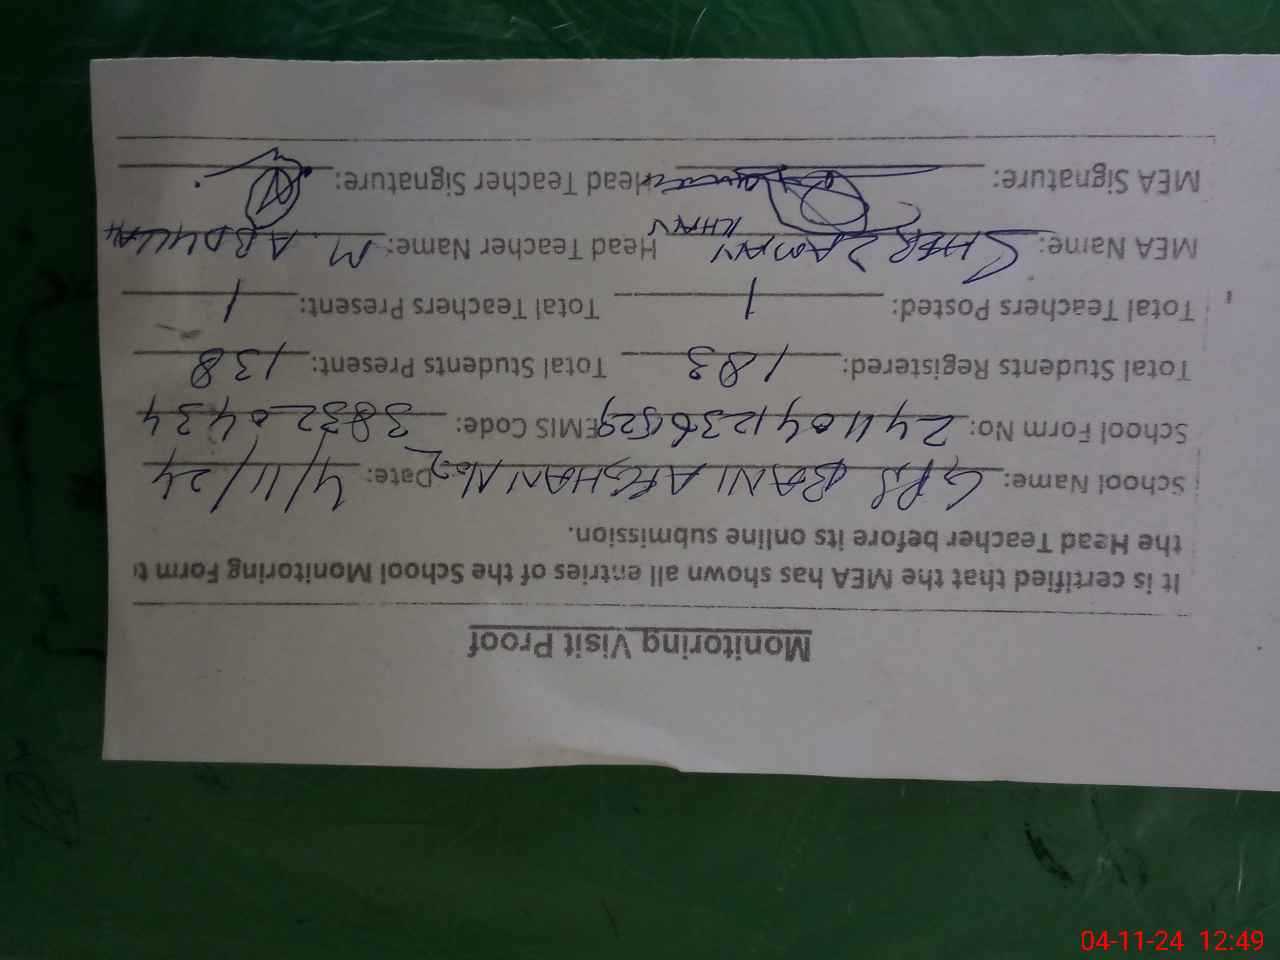 Monitoring Visit Proof
It is certified that the MEA has shown all entries of the School Monitoring Form t
the Head Teacher before its online submission.
School Name: GPS BANI AFGHAN No.2 Date: 4/11/24
School Form No: 2411041236529 EMIS Code: 38320434
Total Students Registered: 183 Total Students Present: 138
Total Teachers Posted: 1 Total Teachers Present: 1
MEA Name: SHER ZAMAN KHAN Head Teacher Name: M. ABDULLAH
MEA Signature: Head Teacher Signature:
04-11-24 12:49